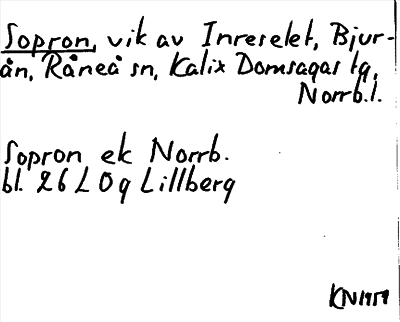 Sopron, vik av Inreselet, Bjur-
ån, Råneå sn, Kalix Domsagas tg,
Norrb.l.
Sopron ek Norrb.
bl. 26 L 0g Lillberg
KN1959